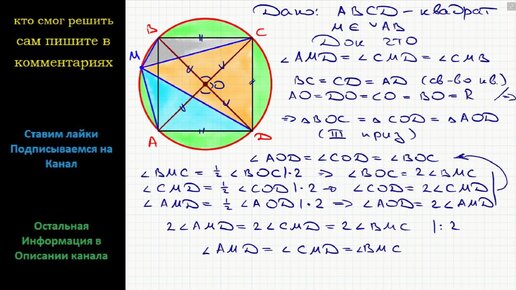 кто смог решить
сам пишите в
комментариях
Ставим лайки
Подписываемся на
Канал
Остальная
Информация в
Описании канала
B
C
M
O
A
D
Дано: ABCD – квадрат
M ∈ ◡AB
Док что
∠AMD = ∠CMD = ∠CMB
BC = CD = AD (св-во кв.)
AO = DO = CO = BO = R ⇒
⇒ △BOC = △COD = △AOD
(III приз)
∠AOD = ∠COD = ∠BOC
∠BMC = ½ ∠BOC |·2 ⇒ ∠BOC = 2∠BMC
∠CMD = ½ ∠COD |·2 ⇒ ∠COD = 2∠CMD
∠AMD = ½ ∠AOD |·2 ⇒ ∠AOD = 2∠AMD
2∠AMD = 2∠CMD = 2∠BMC |:2
∠AMD = ∠CMD = ∠BMC